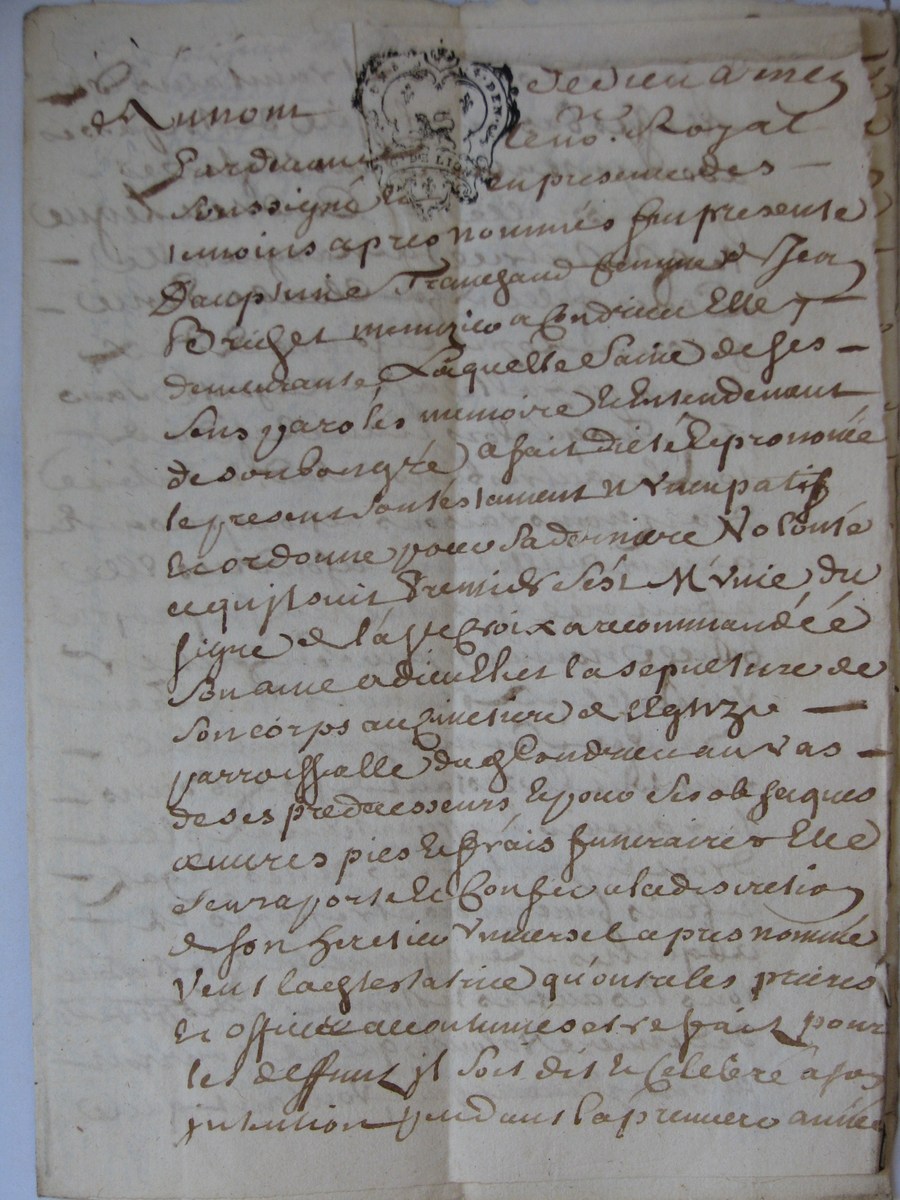 Au nom de dieu amen
Pardevant le no.re Royal
Soussigné et en presence des
temoins apres nommés fut presente
Dauphine Tranchand femme de Jean
Brichet menuizier a Condrieu Elle y
demeurante, Laquelle Saine de ses
Sens parolles memoire et Entendement
de son bon gré a fait dicté et prononcé
le present Son testament Nuncupatif
et ordonne pour Sa derniere Volonté
ce qui suit Premier S'est Munie du
signe de la ste Croix a recommandéé
Son ame a dieu Elut la sepulture de
Son corps au Cimetiere de l'Eglize
parroissialle dud Condrieu au vas
de ses predecesseurs et pour Ses obseques
œuvres pies et frais funeraires Elle
s'en raporte et Confie a la discretion
de son heretier Universel apres nommé
Veut lad testatrice qu'outre les prieres
et offices accoutumés estre fait pour
les deffunt jl Soit dit et Celebré a son
jntention pendant la premiere année